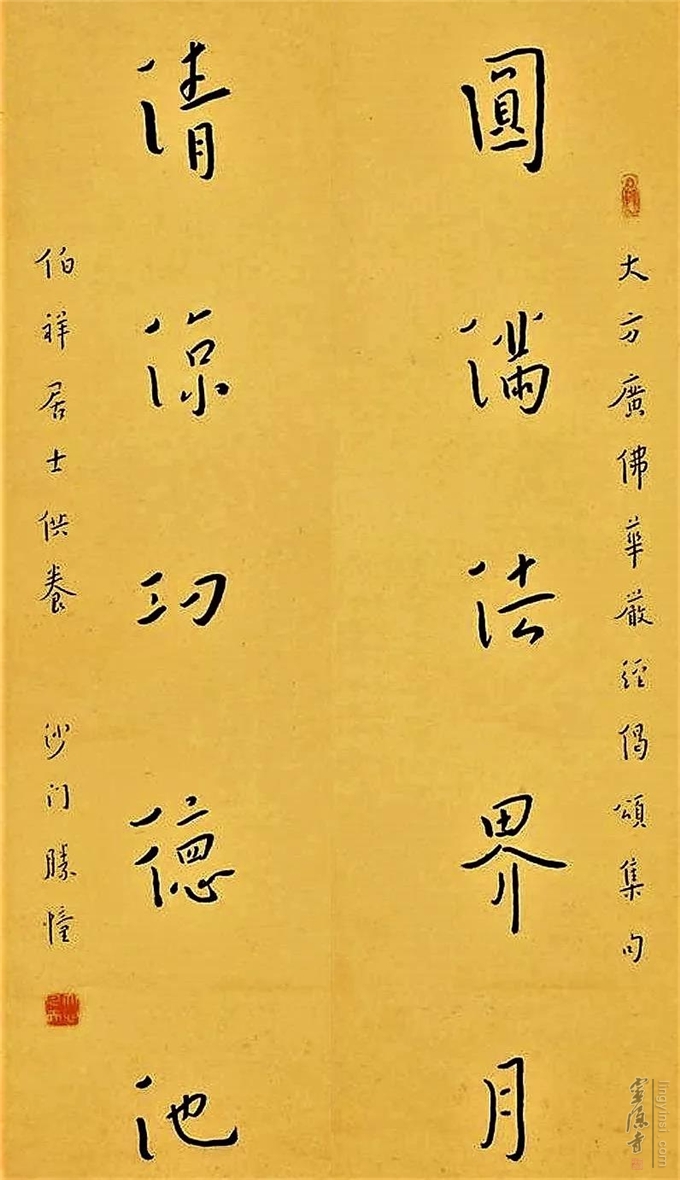 大方廣佛華嚴經偈頌集句
圓滿法界月
清涼功德池
伯祥居士供養 沙门勝幢
靈隱寺
lingyinsi.com